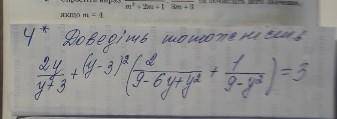 m²+2m+1 3m+3
якщо m = 4.
4* Доведіть тотожність
2y/(y+3) + (y-3)² (2/(9-6y+y²) + 1/(9-y²)) = 3